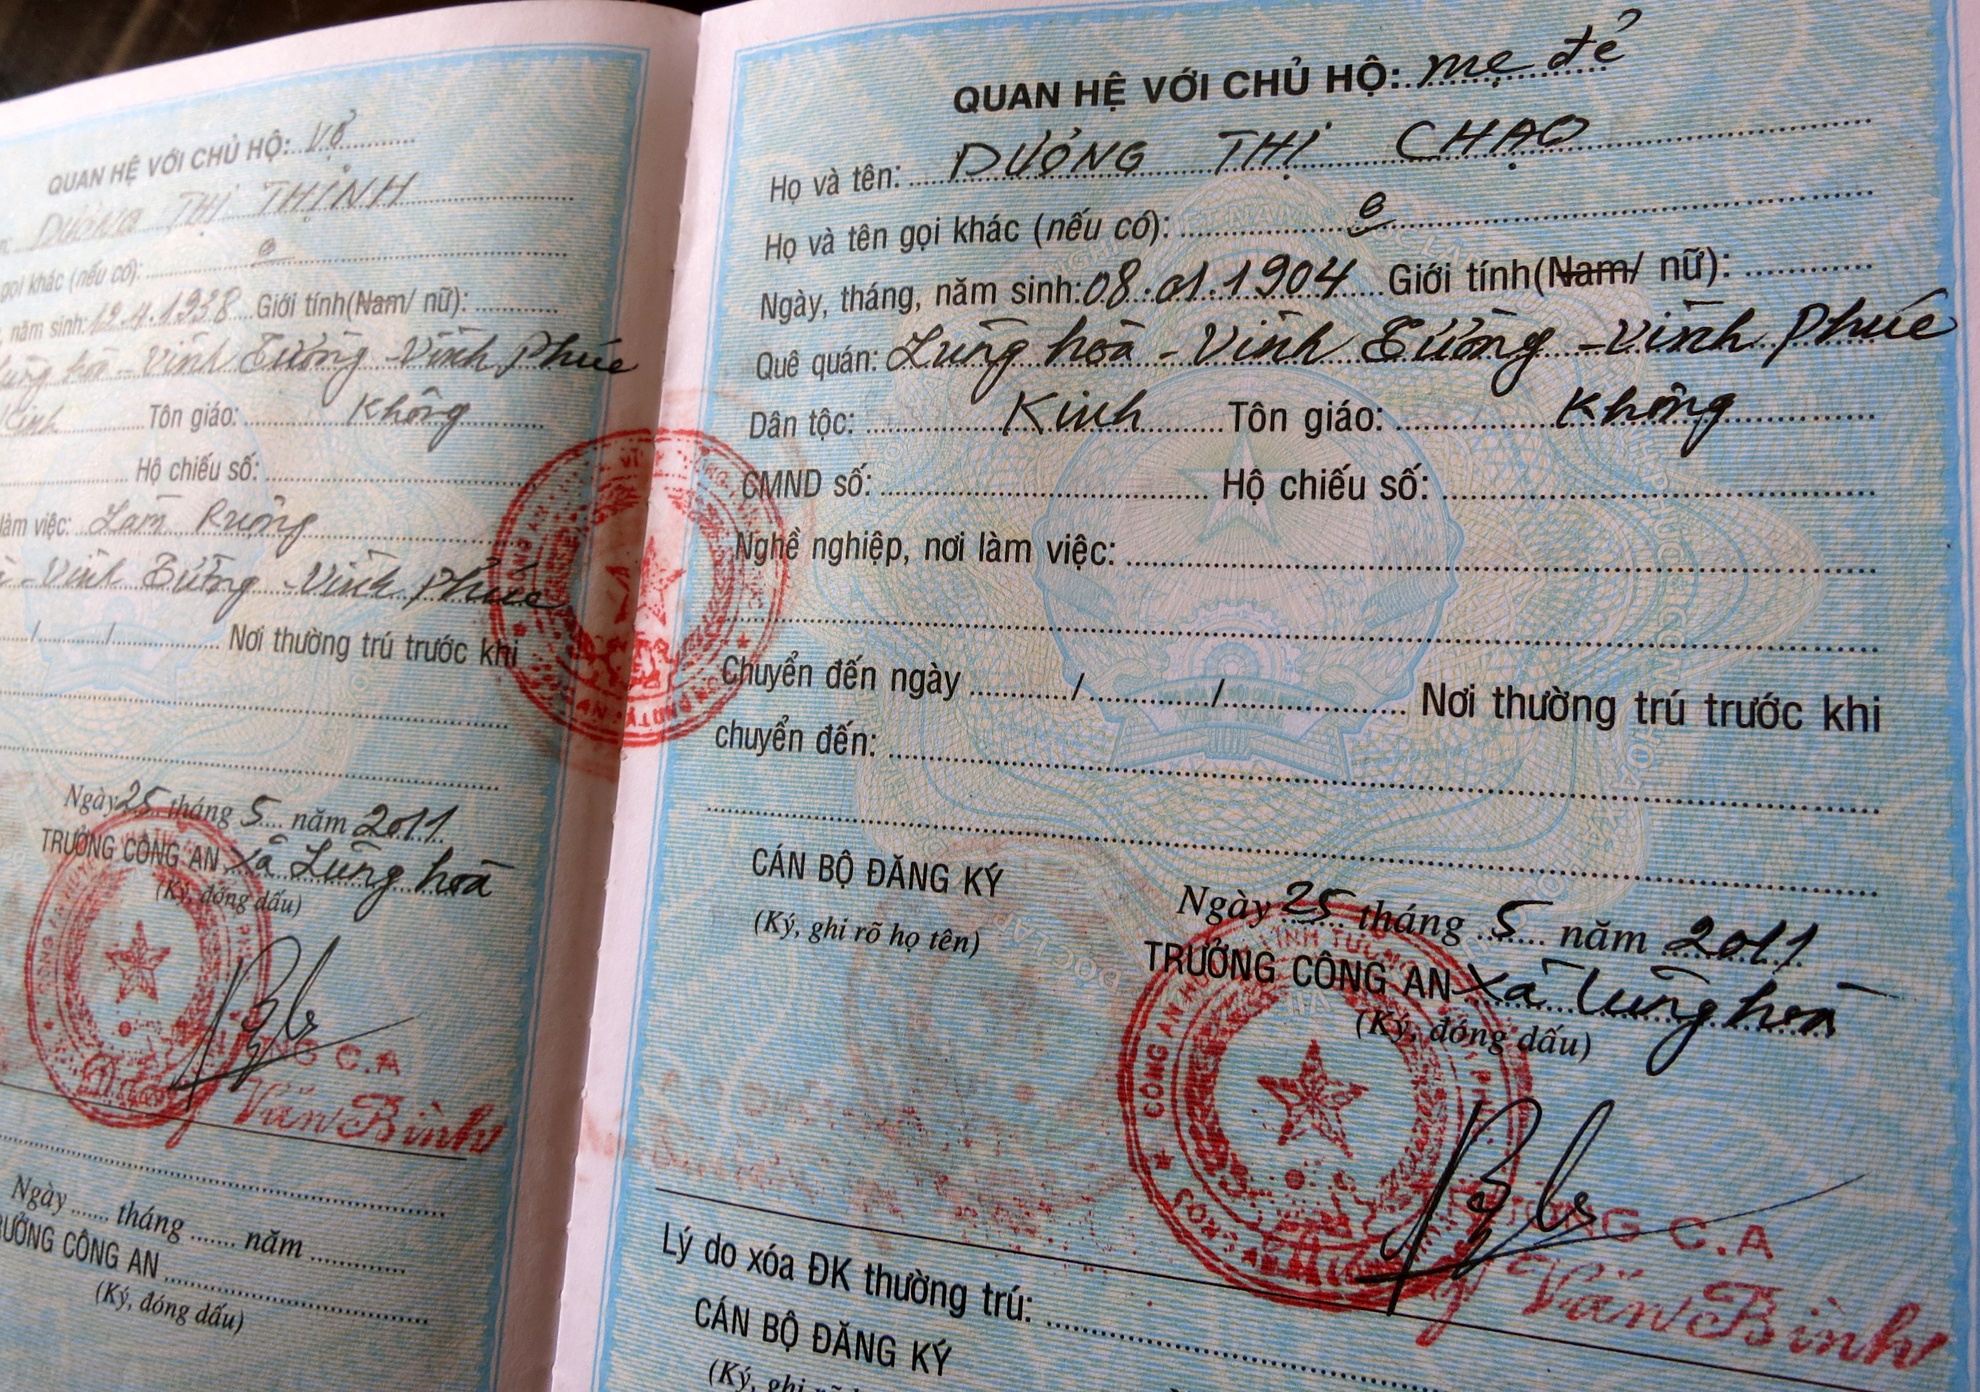 QUAN HỆ VỚI CHỦ HỘ: Vợ
DƯƠNG THỊ THỊNH
gọi khác (nếu có):
năm sinh: 12.4.1938 Giới tính(Nam/ nữ):
Lũng hòa - Vĩnh Tường - Vĩnh Phúc
Kinh Tôn giáo: Không
Hộ chiếu số:
làm việc: Làm Ruộng
- Vĩnh Tường - Vĩnh Phúc
/ / Nơi thường trú trước khi
Ngày 25 tháng 5 năm 2011
TRƯỞNG CÔNG AN xã Lũng hoà
(Ký, đóng dấu)
G C.A
Văn Bình
Ngày tháng năm
TRƯỞNG CÔNG AN
(Ký, đóng dấu)
QUAN HỆ VỚI CHỦ HỘ: mẹ đẻ
Họ và tên: DƯƠNG THỊ CHẠO
Họ và tên gọi khác (nếu có):
Ngày, tháng, năm sinh: 08.01.1904 Giới tính(Nam/ nữ):
Quê quán: Lũng hòa - Vĩnh Tường - Vĩnh Phúc
Dân tộc: Kinh Tôn giáo: Không
CMND số: Hộ chiếu số:
Nghề nghiệp, nơi làm việc:
Chuyển đến ngày / / Nơi thường trú trước khi
chuyển đến:
CÁN BỘ ĐĂNG KÝ
(Ký, ghi rõ họ tên)
Ngày 25 tháng 5 năm 2011
TRƯỞNG CÔNG AN xã Lũng hoà
(Ký, đóng dấu)
TRƯỞNG C.A
Văn Bình
Lý do xóa ĐK thường trú:
CÁN BỘ ĐĂNG KÝ
(Ký, ghi rõ